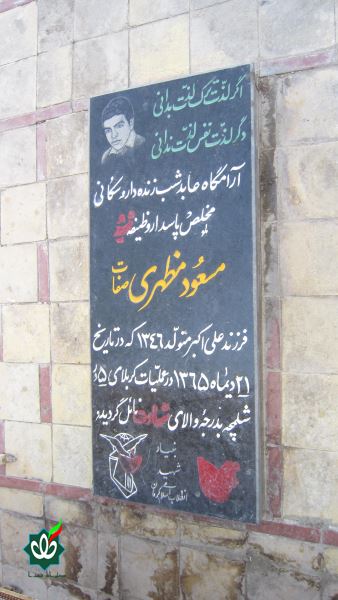 اگر لذت ترک لذت بدانی
دگر لذت نفس لذت ندانی
آرامگاه عابد شب زنده دار و سکانی
مخلص پاسدار وظیفه شهید
مسعود مظهری صفات
فرزند علی اکبر متولد ۱۳۴۶ که در تاریخ
۲۱ دیماه ۱۳۶۵ در عملیات کربلای ۵ در
شلمچه بدرجه والای شهادت نائل گردید
بنیاد
شهید
انقلاب اسلامی کرمان